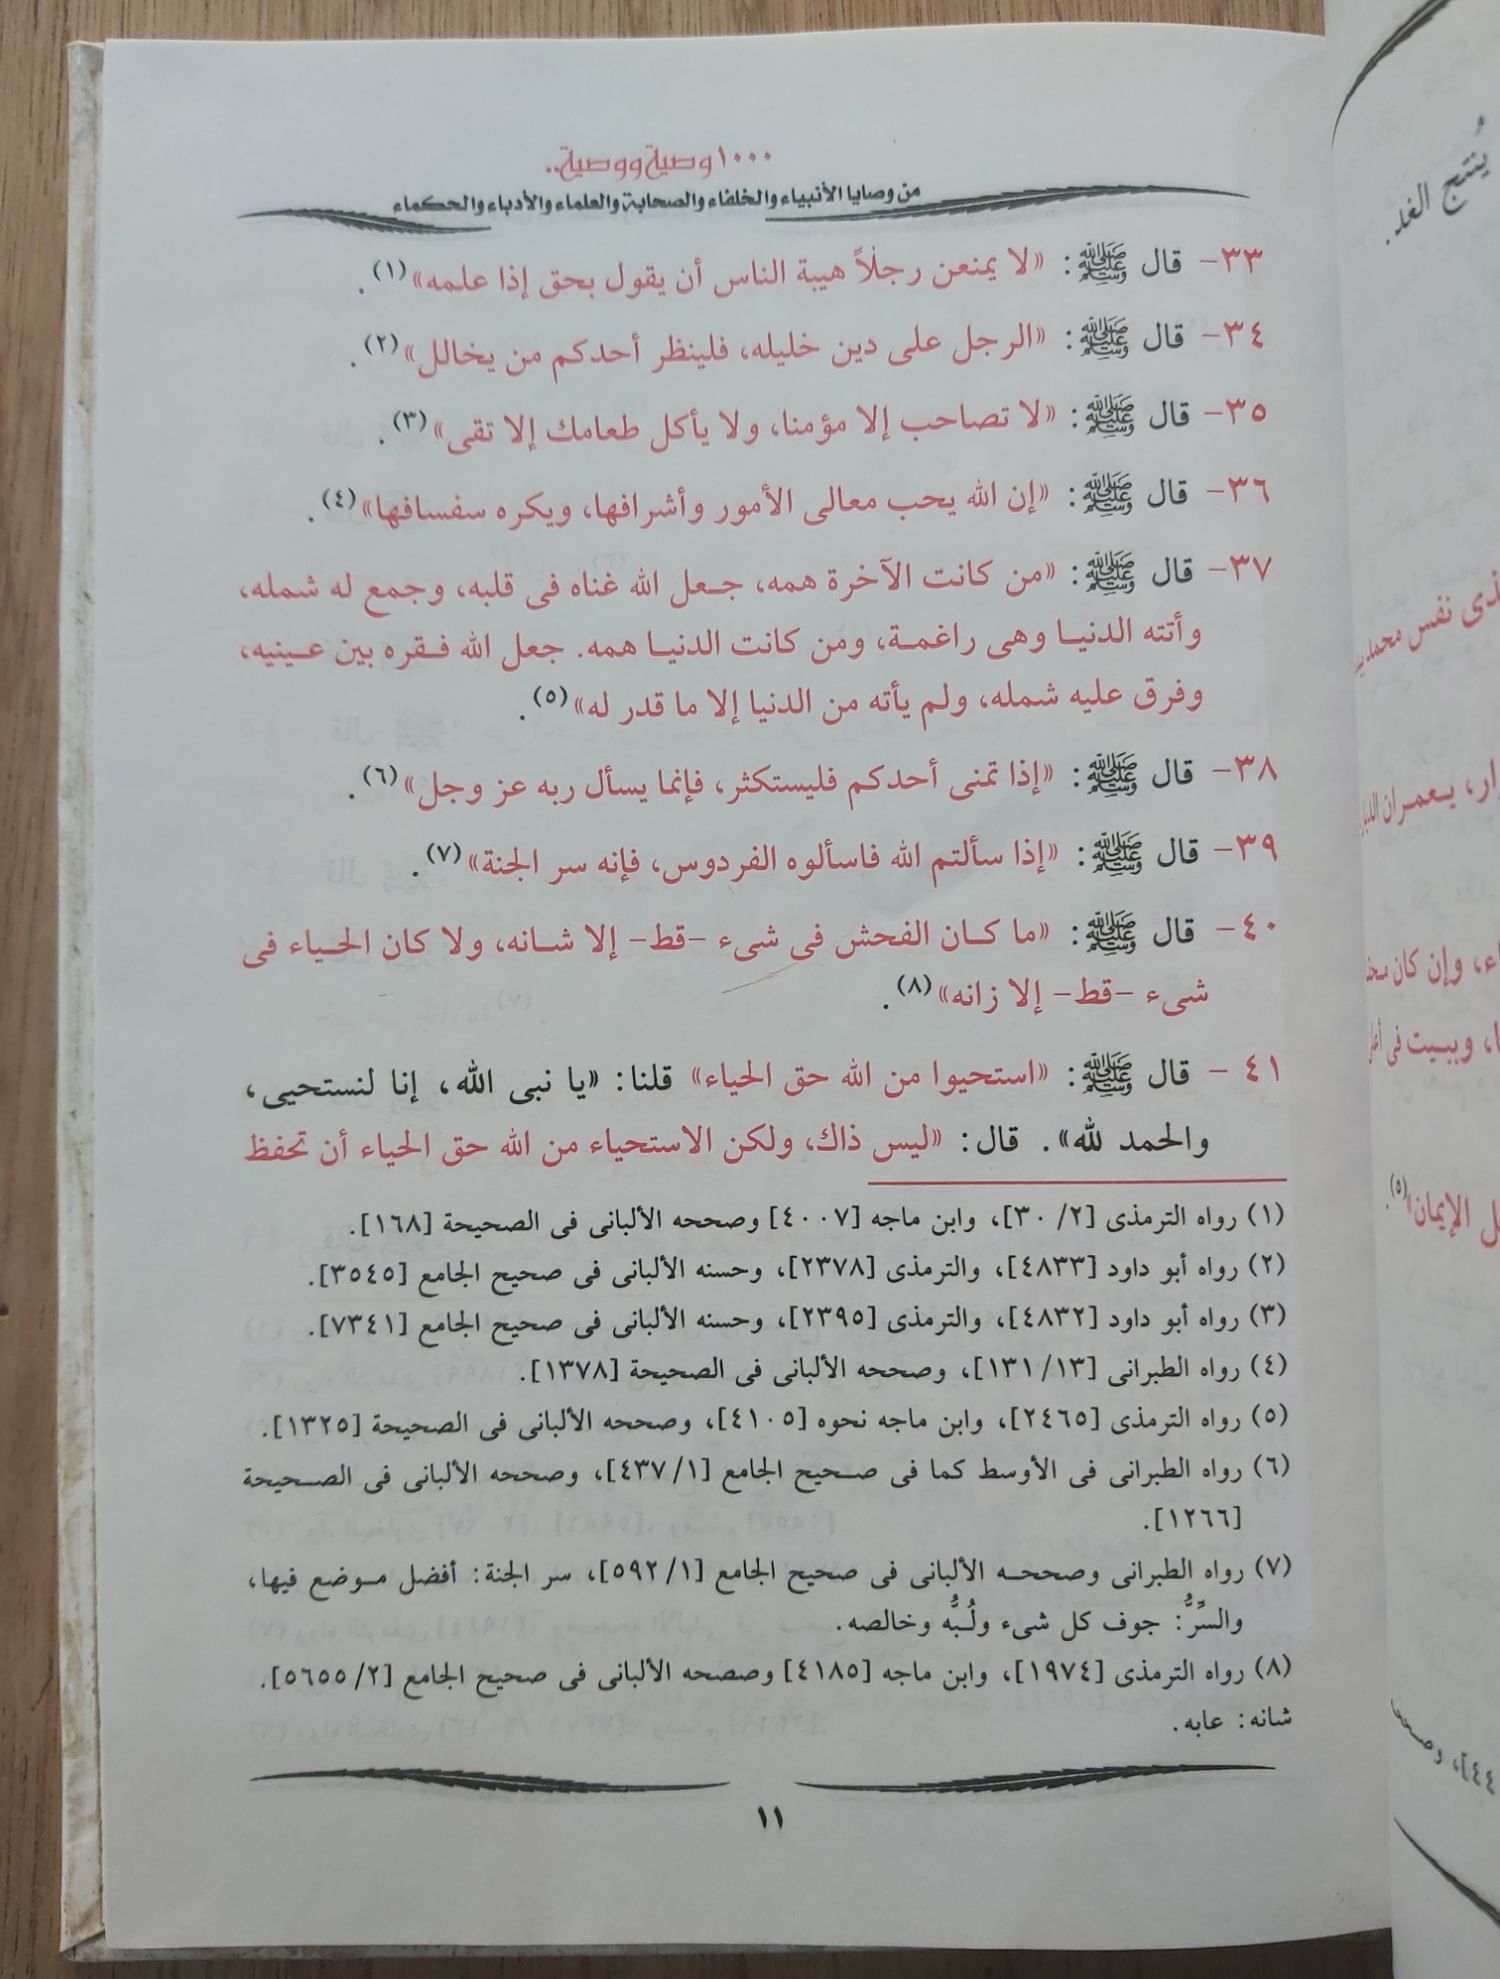 ١٠٠٠ وصية ووصية..
من وصايا الأنبياء والخلفاء والصحابة والعلماء والأدباء والحكماء
٣٣- قال ﷺ: «لا يمنعن رجلاً هيبة الناس أن يقول بحق إذا علمه»(١).
٣٤- قال ﷺ: «الرجل على دين خليله، فلينظر أحدكم من يخالل»(٢).
٣٥- قال ﷺ: «لا تصاحب إلا مؤمنا، ولا يأكل طعامك إلا تقى»(٣).
٣٦- قال ﷺ: «إن الله يحب معالى الأمور وأشرافها، ويكره سفسافها»(٤).
٣٧- قال ﷺ: «من كانت الآخرة همه، جعل الله غناه فى قلبه، وجمع له شمله،
وأتته الدنيا وهى راغمة، ومن كانت الدنيا همه. جعل الله فقره بين عينيه،
وفرق عليه شمله، ولم يأته من الدنيا إلا ما قدر له»(٥).
٣٨- قال ﷺ: «إذا تمنى أحدكم فليستكثر، فإنما يسأل ربه عز وجل»(٦).
٣٩- قال ﷺ: «إذا سألتم الله فاسألوه الفردوس، فإنه سر الجنة»(٧).
٤٠- قال ﷺ: «ما كان الفحش فى شىء -قط- إلا شانه، ولا كان الحياء فى
شىء -قط- إلا زانه»(٨).
٤١ - قال ﷺ: «استحيوا من الله حق الحياء» قلنا: «يا نبى الله، إنا لنستحيى،
والحمد لله». قال: «ليس ذاك، ولكن الاستحياء من الله حق الحياء أن تحفظ
(١) رواه الترمذى [٣٠/٢]، وابن ماجه [٤٠٠٧] وصححه الألبانى فى الصحيحة [١٦٨].
(٢) رواه أبو داود [٤٨٣٣]، والترمذى [٢٣٧٨]، وحسنه الألبانى فى صحيح الجامع [٣٥٤٥].
(٣) رواه أبو داود [٤٨٣٢]، والترمذى [٢٣٩٥]، وحسنه الألبانى فى صحيح الجامع [٧٣٤١].
(٤) رواه الطبرانى [١٣١/١٣]، وصححه الألبانى فى الصحيحة [١٣٧٨].
(٥) رواه الترمذى [٢٤٦٥]، وابن ماجه نحوه [٤١٠٥]، وصححه الألبانى فى الصحيحة [١٣٢٥].
(٦) رواه الطبرانى فى الأوسط كما فى صحيح الجامع [٤٣٧/١]، وصححه الألبانى فى الصحيحة
[١٢٦٦].
(٧) رواه الطبرانى وصححه الألبانى فى صحيح الجامع [٥٩٢/١]، سر الجنة: أفضل موضع فيها،
والسِّرُّ: جوف كل شىء ولُبُّه وخالصه.
(٨) رواه الترمذى [١٩٧٤]، وابن ماجه [٤١٨٥] وصصحه الألبانى فى صحيح الجامع [٥٦٥٥/٢].
شانه: عابه.
١١
يُنتج الغد.
نفس محمد
يعمران
ء، وإن كان
ا، وببيت فى
الإيمان»(٥).